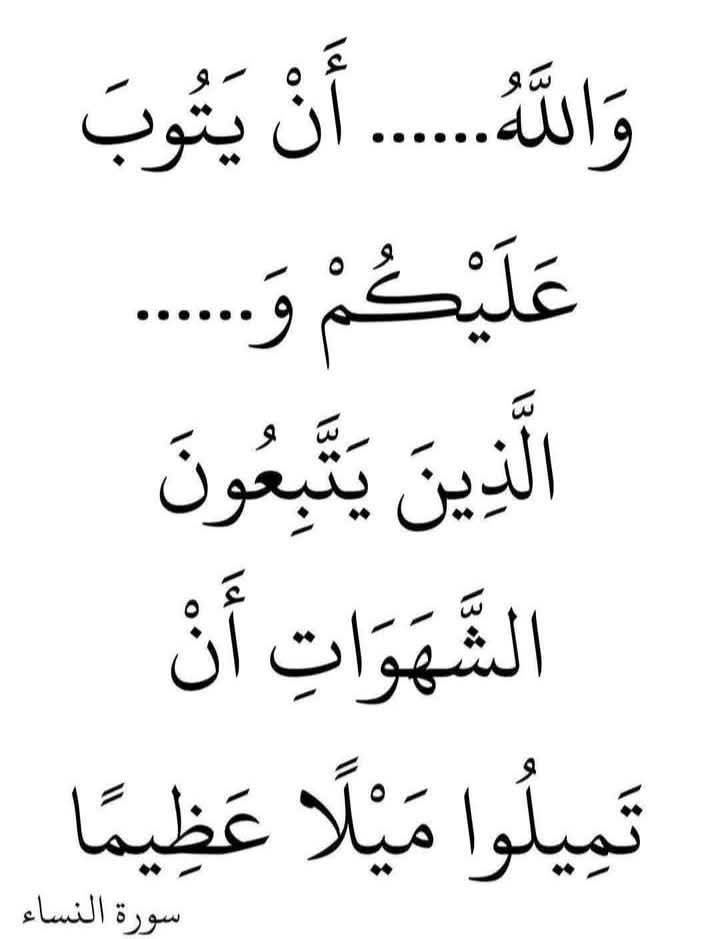 وَاللَّهُ...... أَنْ يَتُوبَ
عَلَيْكُمْ وَ......
الَّذِينَ يَتَّبِعُونَ
الشَّهَوَاتِ أَنْ
تَمِيلُوا مَيْلًا عَظِيمًا
سورة النساء